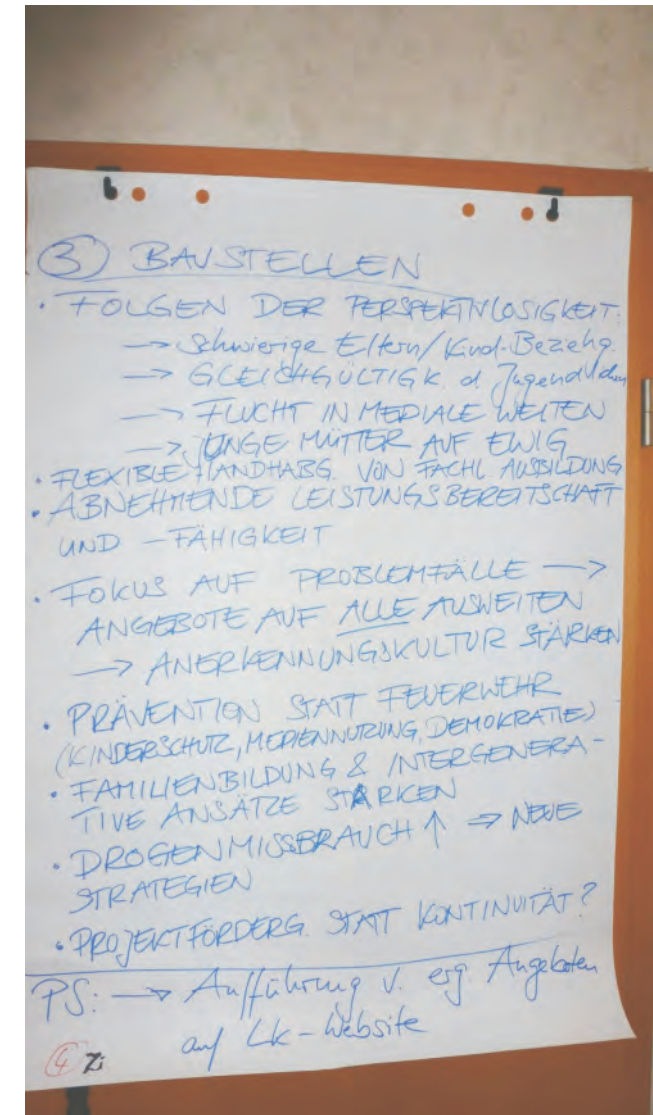 ③ BAUSTELLEN
• FOLGEN DER PERSPEKTIVLOSIGKEIT:
→ Schwierige Eltern/Kind-Beziehg.
→ GLEICHGÜLTIGK. d Jugendlichen
→ FLUCHT IN MEDIALE WELTEN
→ JUNGE MÜTTER AUF EWIG
• FLEXIBLE HANDHABG. VON FACHL. AUSBILDUNG
• ABNEHMENDE LEISTUNGSBEREITSCHAFT
UND -FÄHIGKEIT
• FOKUS AUF PROBLEMFÄLLE →
ANGEBOTE AUF ALLE AUSWEITEN
→ ANERKENNUNGSKULTUR STÄRKEN
• PRÄVENTION STATT FEUERWEHR
(KINDERSCHUTZ, MEDIENNUTZUNG, DEMOKRATIE)
• FAMILIENBILDUNG & INTERGENERA-
TIVE ANSÄTZE STÄRKEN
• DROGENMISSBRAUCH ↑ ⇒ NEUE
STRATEGIEN
• PROJEKTFÖRDERG. STATT KONTINUITÄT?
PS: → Aufführung v. erg Angeboten
auf Lk-Website
④ Zi